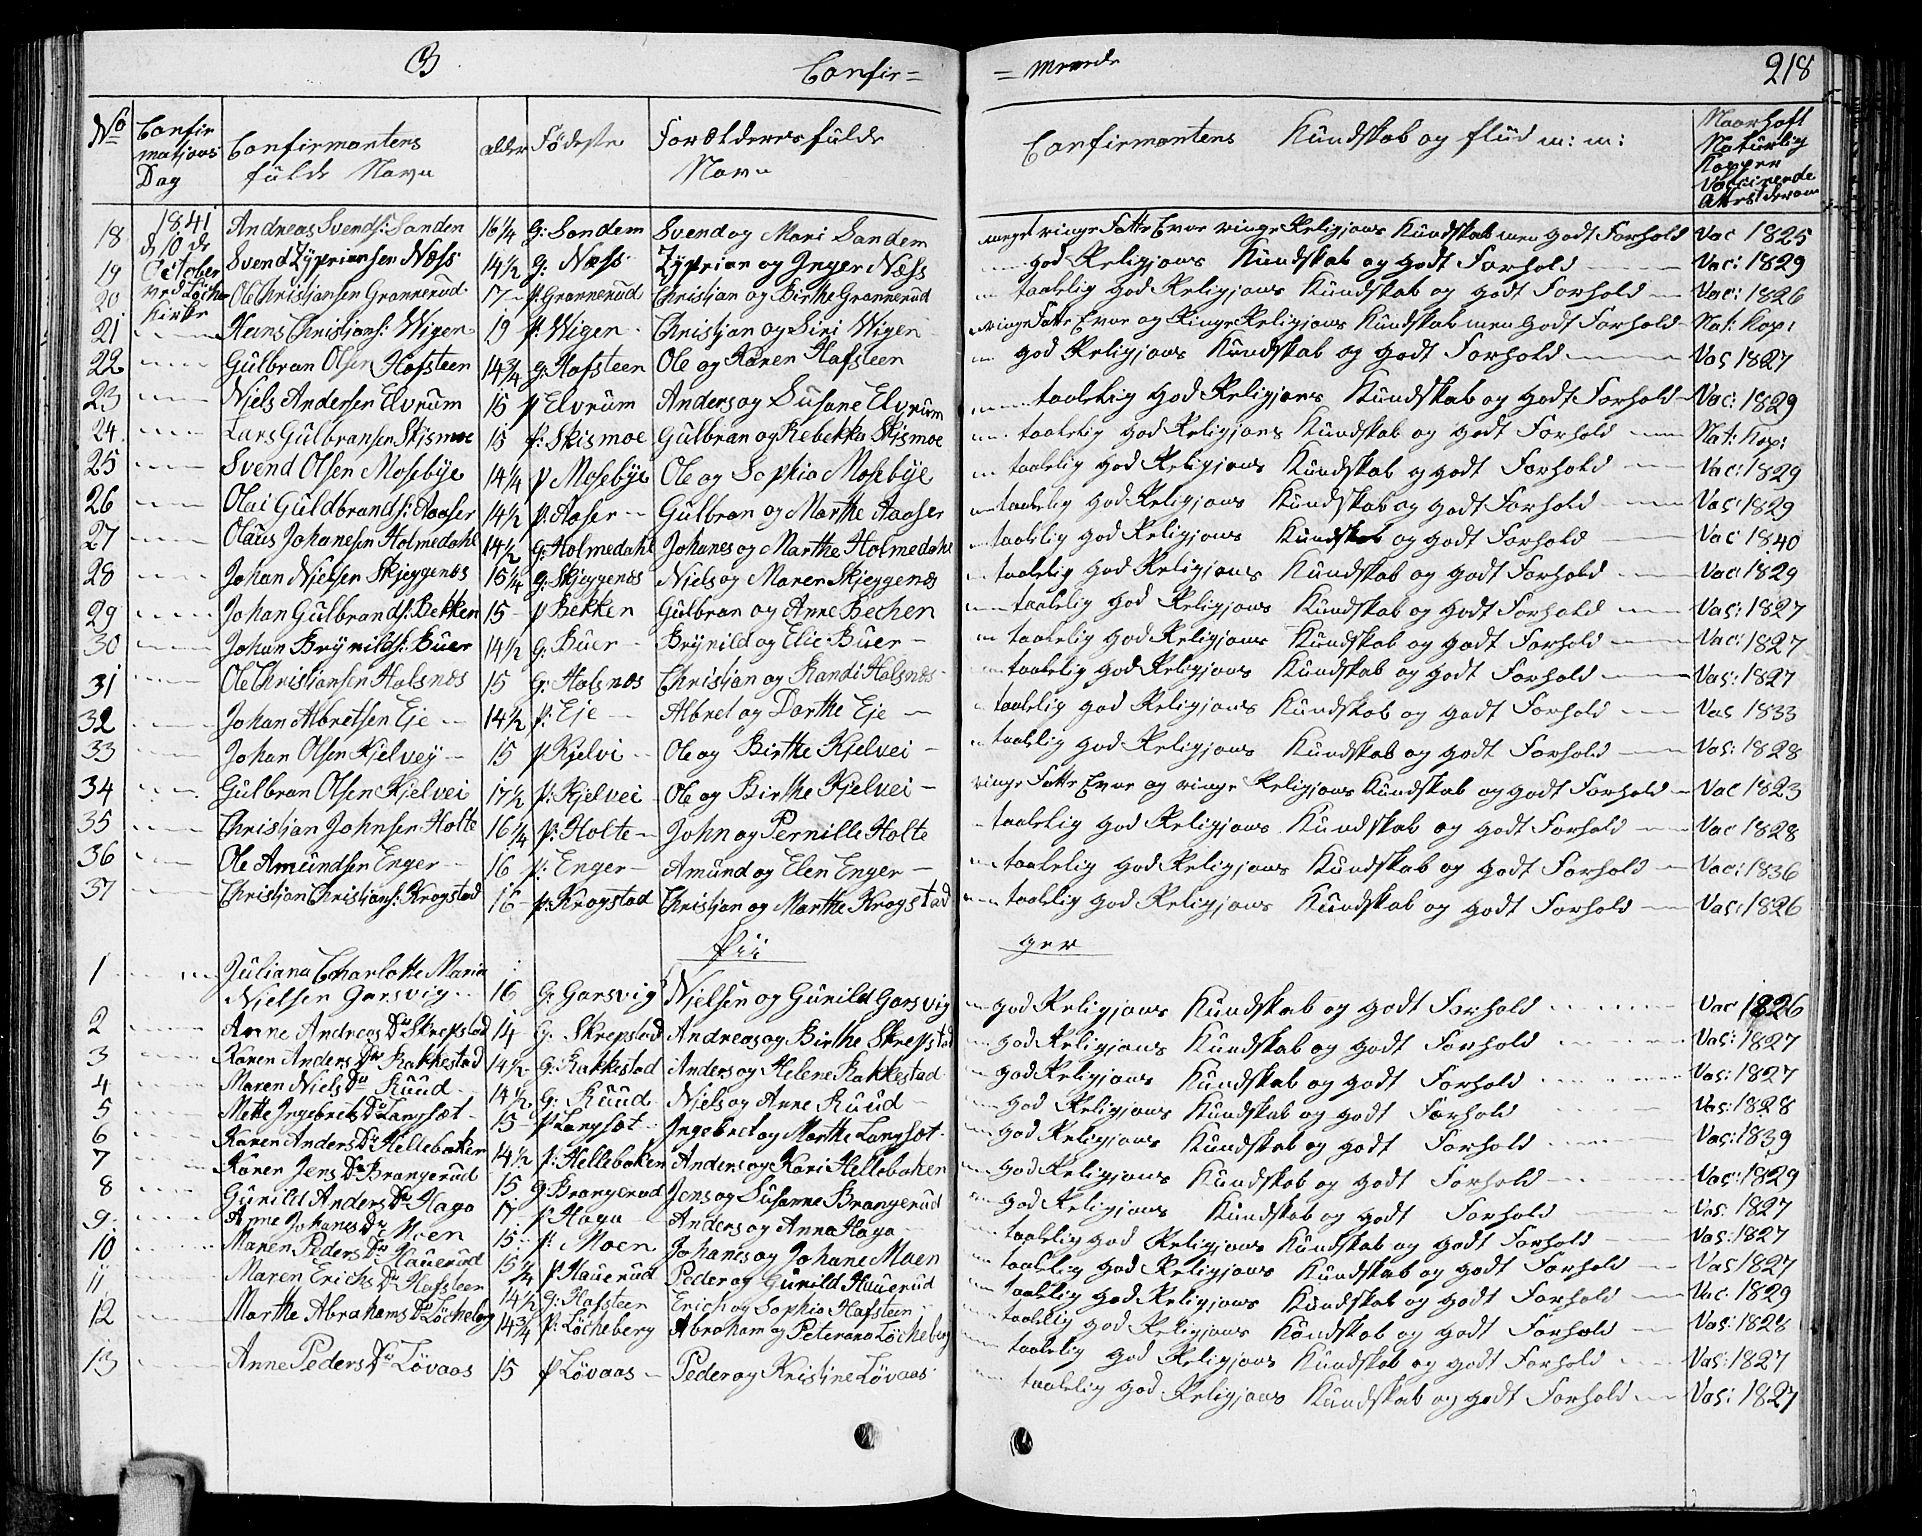 Confir= =merede 218
No Confirmations Dag Confirmantens fulde Navn alder Födeste Forælderes fulde Navn Confirmantens Kundskab og flüd m: m: Naarhaft Naturlig Kopper Vaccinerede Attest derom
18 1841 d 10 de October ved Löche Kirke Andreas Svends: Sanden 16 1/4 g: Sandem Svend og Mari Sandem meget ringe Fatte Evne ringe Religjons Kundskab men godt Forhold Vac 1825
19 Svend Zypriansen Næss 14 1/2 g: Næss Zyprian og Inger Næss god Religjons Kundskab og godt Forhold Vac: 1829
20 Ole Christjansen Grannerud 17 p: Grannerud Christjan og Birthe Grannerud taalelig god Religjons Kundskab og godt Forhold Vac: 1826
21 Hans Christjans: Wigen 19 p: Wigen Christjan og Siri Wigen ringe Fatte Evne og Ringe Religjons Kundskab men godt Forhold Nat: Kop:
22 Gulbran Olsen Hafsteen 14 3/4 g: Hafsteen Ole og Karen Hafsteen god Religjons Kundskab og godt Forhold Vac 1827
23 Niels Andersen Elvrum 15 p Elvrum Anders og Susane Elvrum taalelig god Religjons Kundskab og godt Forhold Vac: 1829
24 Lars Gulbransen Skismoe 15 p: Skismoe Gulbran og Rebekka Skismoe taalelig god Religjons Kundskab og godt Forhold Nat: Kop:
25 Svend Olsen Mosebye 14 1/4 p Mosebye Ole og Sophia Mosebye taalelig god Religjons Kundskab og godt Forhold Vac: 1829
26 Olai Guldbrands: Aaaser 14 1/2 p: Aaser Gulbran og Marthe Aaaser taalelig god Religjons Kundskab og godt Forhold Vac: 1829
27 Olaus Johanesen Holmedahl 14 1/2 G: Holmedahl Johanes og Marthe Holmedahl taalelig god Religjons Kundskab og godt Forhold Vac 1840
28 Johan Nielsen Skjeggenæs 15 1/4 g: Skjeggenæs Niels og Maren Skjeggenæs taalelig god Religjons Kundskab og godt Forhold Vac: 1829
29 Johan Gulbrands: Bekken 15 p Bekken Gulbran og Anne Bechen taalelig god Religjons Kundskab og godt Forhold Vac: 1827
30 Johan Brynilds: Buer 14 1/2 g: Buer Brynild og Elie Buer taalelig god Religjons Kundskab og godt Forhold Vac: 1827
31 Ole Christjansen Halsnæs 15 G: Halsnæs Christjan og Randi Halsnæs taalelig god Religjons Kundskab og godt Forhold Vac: 1827
32 Johan Albretsen Eje 14 1/2 p: Eje Albret og Dorthe Eje taalelig god Religjons Kundskab og godt Forhold Vac 1833
33 Johan Olsen Kjelvej 15 p Kjelvi Ole og Birthe Kjelvei taalelig god Religjons Kundskab og godt Forhold Vac: 1828
34 Gulbran Olsen Kjelvei 17 1/2 p: Kjelvei Ole og Birthe Kjelvei ringe Fatte Evne og ringe Religjons Kundskab og godt Forhold Vac 1823
35 Christjan Johnsen Holte 16 1/4 p: Holte John og Pernille Holte taalelig god Religjons Kundskab og godt Forhold Vac 1828
36 Ole Amundsen Enger 16 p: Enger Amund og Elen Enger taalelig god Religjons Kundskab og godt Forhold Vac: 1836
37 Christjan Christjans: Krogstad 16 p: Krogstad Christjan og Marthe Krogstad taalelig god Religjons Kundskab og godt Forhold Vac: 1826
Pii ger
1 Juliana Charlotte Maria
Nielsen Garsvig 16 G: Garsvig Nielsen og Gunild Garsvig god Religjons Kundskab og godt Forhold Vac 1826
2 Anne Andreas Dr Skrepstad 14 G: Skrepstad Andreas og Birthe Skrepstad god Religjons Kundskab og godt Forhold Vac: 1827
3 Karen Anders Dr Rakkestad 14 1/2 G: Rakkestad Anders og Helene Rakkestad god Religjons Kundskab og godt Forhold Vac: 1827
4 Maren Niels Dr Ruud 14 1/2 G: Ruud Niels og Anne Ruud god Religjons Kundskab og godt Forhold Vac: 1828
5 Mette Ingebrets Dr Langsæt 15 p Langsæt Ingebret og Marthe Langsæt god Religjons Kundskab og godt Forhold Vac: 1839
6 Karen Anders Dr Hellebaken 14 1/2 p: Hellebaken Anders og Kari Hellebaken god Religjons Kundskab og godt Forhold Vac: 1829
7 Karen Jens Dr Brangerud 15 g Brangerud Jens og Susanne Brangerud god Religjons Kundskab og godt Forhold Vac 1827
8 Gunild Anders Dr Haga 17 p Haga Anders og Anna Haga taalelig god Religjons Kundskab og godt Forhold Vac: 1827
9 Anne Johanes Dr Moen 15 p: Moen Johanes og Johane Moen taalelig god Religjons Kundskab og godt Forhold Vac 1827
10 Maren Peders Dr Hauerud 15 1/4 p Hauerud Peder og Gunild Hauerud taalelig god Religjons Kundskab og godt Forhold Vac 1829
11 Maren Erichs Dr Hafsteen 14 1/2 g: Hafsteen Erich og Sophia Hafsteen taalelig god Religjons Kundskab og godt Forhold Vac: 1828
12 Marthe Abrahams Dr Löcheberg 14 3/4 p: Löcheberg Abraham og Peterana Löcheberg taalelig god Religjons Kundskab og godt Forhold Vac: 1827
13 Anne Peders Dr Lövaas 15 p Lövaas Peder og Kristine Lövaas taalelig god Religjons Kundskab og godt Forhold Vac: 1827